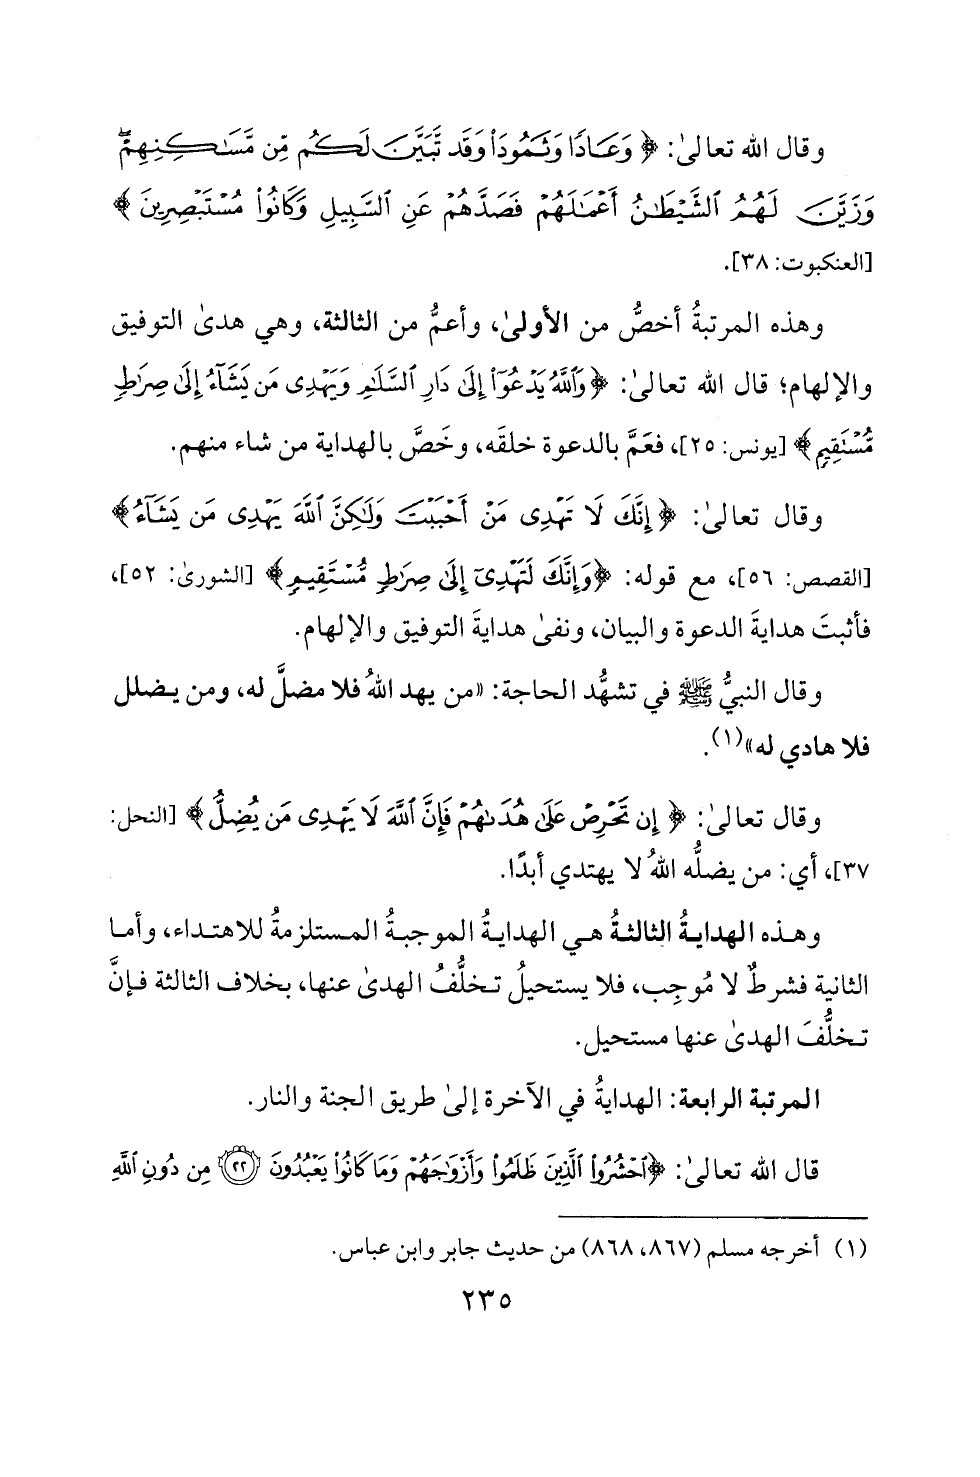 وقال الله تعالىٰ: ﴿وَعَادًا وَثَمُودَا۟ وَقَد تَّبَيَّنَ لَكُم مِّن مَّسَٰكِنِهِمْ ۖ
وَزَيَّنَ لَهُمُ ٱلشَّيْطَٰنُ أَعْمَٰلَهُمْ فَصَدَّهُمْ عَنِ ٱلسَّبِيلِ وَكَانُوا۟ مُسْتَبْصِرِينَ﴾
[العنكبوت: ٣٨].
وهذه المرتبةُ أخصُّ من الأولىٰ، وأعمُّ من الثالثة، وهي هدىٰ التوفيق
والإلهام؛ قال الله تعالىٰ: ﴿وَٱللَّهُ يَدْعُوٓا۟ إِلَىٰ دَارِ ٱلسَّلَٰمِ وَيَهْدِى مَن يَشَآءُ إِلَىٰ صِرَٰطٍ
مُّسْتَقِيمٍ﴾ [يونس: ٢٥]، فعَمَّ بالدعوة خلقَه، وخَصَّ بالهداية من شاء منهم.
وقال تعالىٰ: ﴿إِنَّكَ لَا تَهْدِى مَنْ أَحْبَبْتَ وَلَٰكِنَّ ٱللَّهَ يَهْدِى مَن يَشَآءُ﴾
[القصص: ٥٦]، مع قوله: ﴿وَإِنَّكَ لَتَهْدِىٓ إِلَىٰ صِرَٰطٍ مُّسْتَقِيمٍ﴾ [الشورىٰ: ٥٢]،
فأثبتَ هدايةَ الدعوة والبيان، ونفىٰ هدايةَ التوفيق والإلهام.
وقال النبيُّ ﷺ في تشهُّد الحاجة: «من يهد اللهُ فلا مضلَّ له، ومن يضلل
فلا هادي له»(١).
وقال تعالىٰ: ﴿إِن تَحْرِصْ عَلَىٰ هُدَىٰهُمْ فَإِنَّ ٱللَّهَ لَا يَهْدِى مَن يُضِلُّ﴾ [النحل:
٣٧]، أي: من يضلُّه اللهُ لا يهتدي أبدًا.
وهذه الهدايةُ الثالثةُ هي الهدايةُ الموجبةُ المستلزمةُ للاهتداء، وأما
الثانية فشرطٌ لا مُوجِب، فلا يستحيلُ تخلُّفُ الهدىٰ عنها، بخلاف الثالثة فإنَّ
تخلُّفَ الهدىٰ عنها مستحيل.
المرتبة الرابعة: الهدايةُ في الآخرة إلىٰ طريق الجنة والنار.
قال الله تعالىٰ: ﴿ٱحْشُرُوا۟ ٱلَّذِينَ ظَلَمُوا۟ وَأَزْوَٰجَهُمْ وَمَا كَانُوا۟ يَعْبُدُونَ ٢٢ مِن دُونِ ٱللَّهِ
(١) أخرجه مسلم (٨٦٧، ٨٦٨) من حديث جابر وابن عباس.
٢٣٥